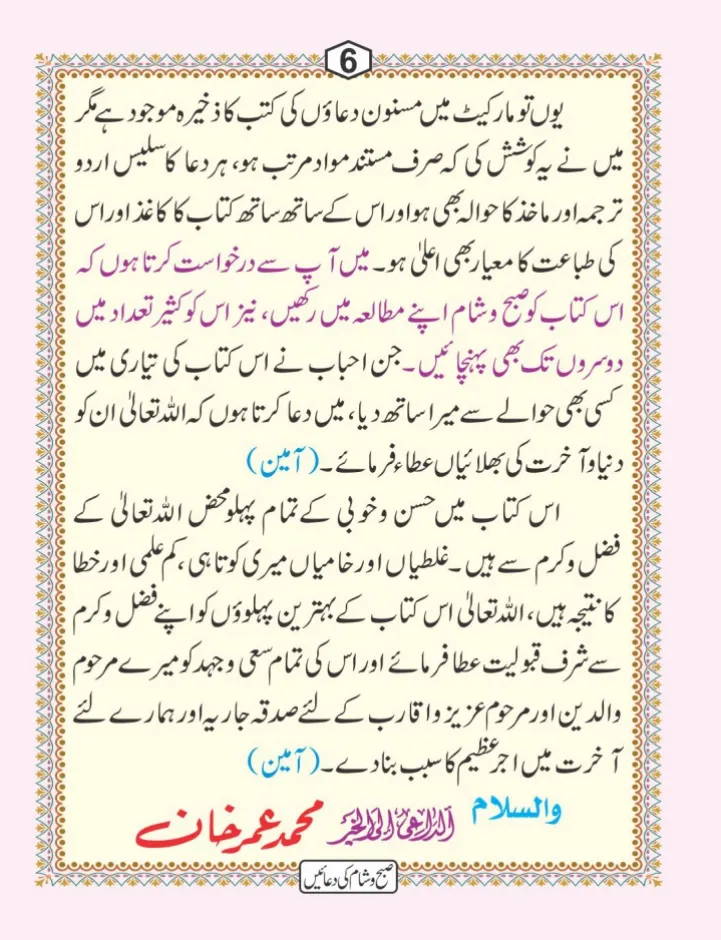 6
یوں تو مارکیٹ میں مسنون دعاؤں کی کتب کا ذخیرہ موجود ہے مگر
میں نے یہ کوشش کی کہ صرف مستند مواد مرتب ہو، ہر دعا کا سلیس اردو
ترجمہ اور ماخذ کا حوالہ بھی ہو اور اس کے ساتھ ساتھ کتاب کا کاغذ اور اس
کی طباعت کا معیار بھی اعلیٰ ہو۔ میں آپ سے درخواست کرتا ہوں کہ
اس کتاب کو صبح و شام اپنے مطالعہ میں رکھیں، نیز اس کو کثیر تعداد میں
دوسروں تک بھی پہنچائیں۔ جن احباب نے اس کتاب کی تیاری میں
کسی بھی حوالے سے میرا ساتھ دیا، میں دعا کرتا ہوں کہ اللہ تعالیٰ ان کو
دنیا و آخرت کی بھلائیاں عطاء فرمائے۔ (آمین)
اس کتاب میں حسن و خوبی کے تمام پہلو محض اللہ تعالیٰ کے
فضل و کرم سے ہیں۔ غلطیاں اور خامیاں میری کوتاہی، کم علمی اور خطا
کا نتیجہ ہیں، اللہ تعالیٰ اس کتاب کے بہترین پہلوؤں کو اپنے فضل و کرم
سے شرف قبولیت عطا فرمائے اور اس کی تمام سعی و جہد کو میرے مرحوم
والدین اور مرحوم عزیز و اقارب کے لئے صدقہ جاریہ اور ہمارے لئے
آخرت میں اجر عظیم کا سبب بنا دے۔ (آمین)
والسلام
الداعی الی الخیر محمد عمر خان
صبح و شام کی دعائیں